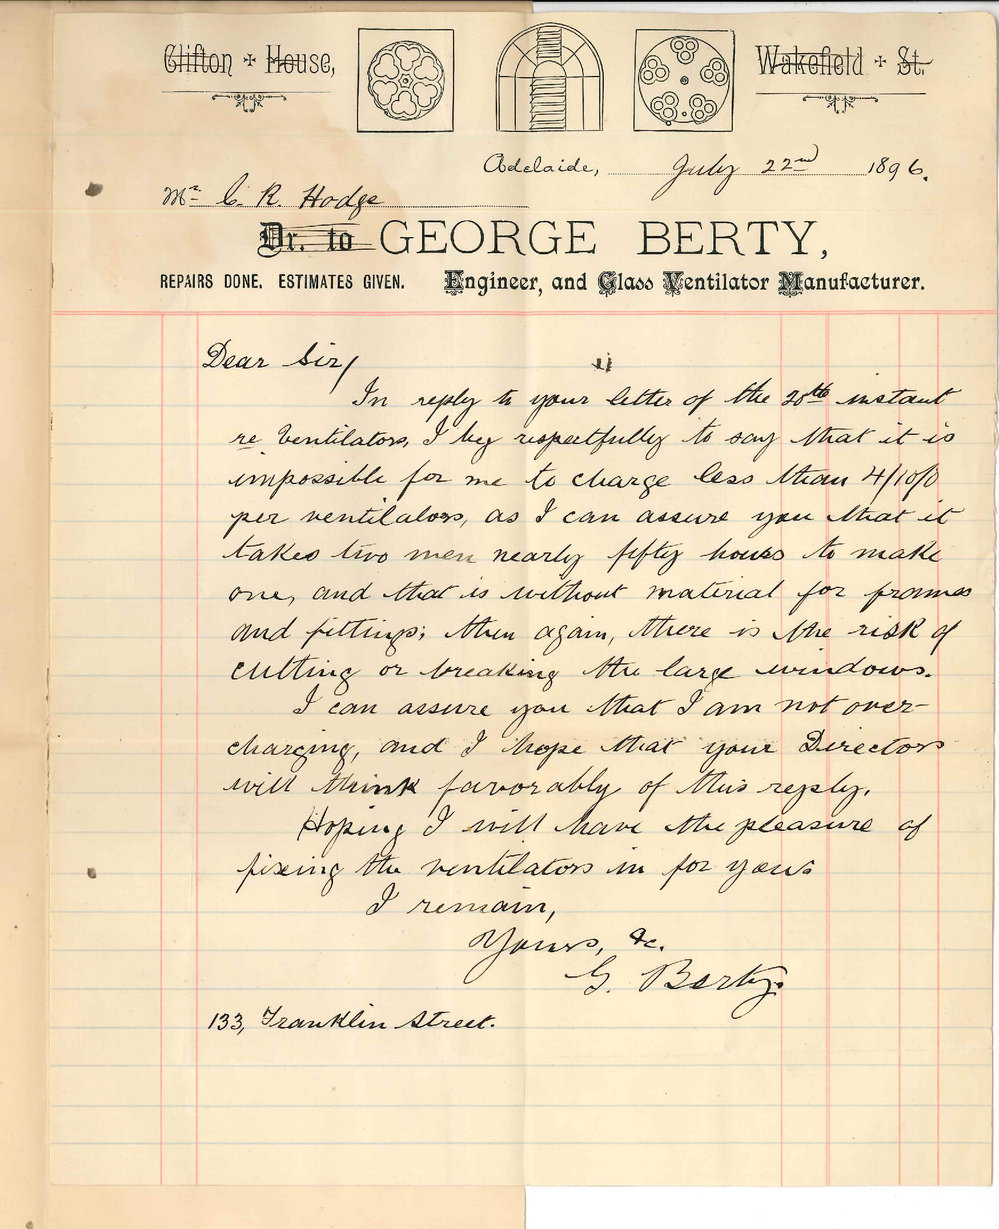 Clifton + House, Wakefield + St.
Adelaide, July 22nd 1896.
Mr. C. R. Hodge
Dr. to GEORGE BERTY,
REPAIRS DONE. ESTIMATES GIVEN. Engineer, and Glass Ventilator Manufacturer.
Dear Sir/
In reply to your letter of the 20th instant
re Ventilators, I beg respectfully to say that it is
impossible for me to charge less than 4/10/0
per ventilator, as I can assure you that it
takes two men nearly fifty hours to make
one, and that is without material for frames
and fittings; then again, there is the risk of
cutting or breaking the large windows.
I can assure you that I am not over-
charging, and I hope that your Directors
will think favorably of this reply.
Hoping I will have the pleasure of
fixing the ventilators in for you.
I remain,
Yours, &c.
G. Berty.
133, Franklin Street.